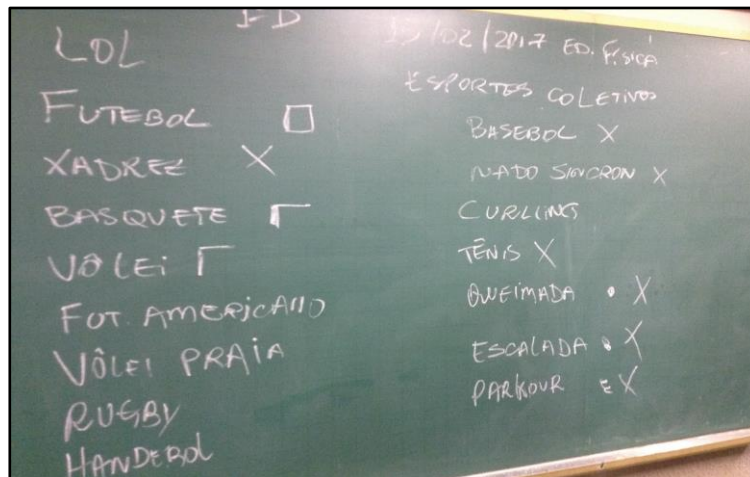 LOL
FUTEBOL
XADREZ X
BASQUETE
VÔLEI
FUT. AMERICANO
VÔLEI PRAIA
RUGBY
HANDEBOL
/02/2017 ED. FÍSICA
ESPORTES COLETIVOS
BASEBOL X
NADO SINCRON X
CURLLING
TÊNIS X
QUEIMADA • X
ESCALADA • X
PARKOUR E X